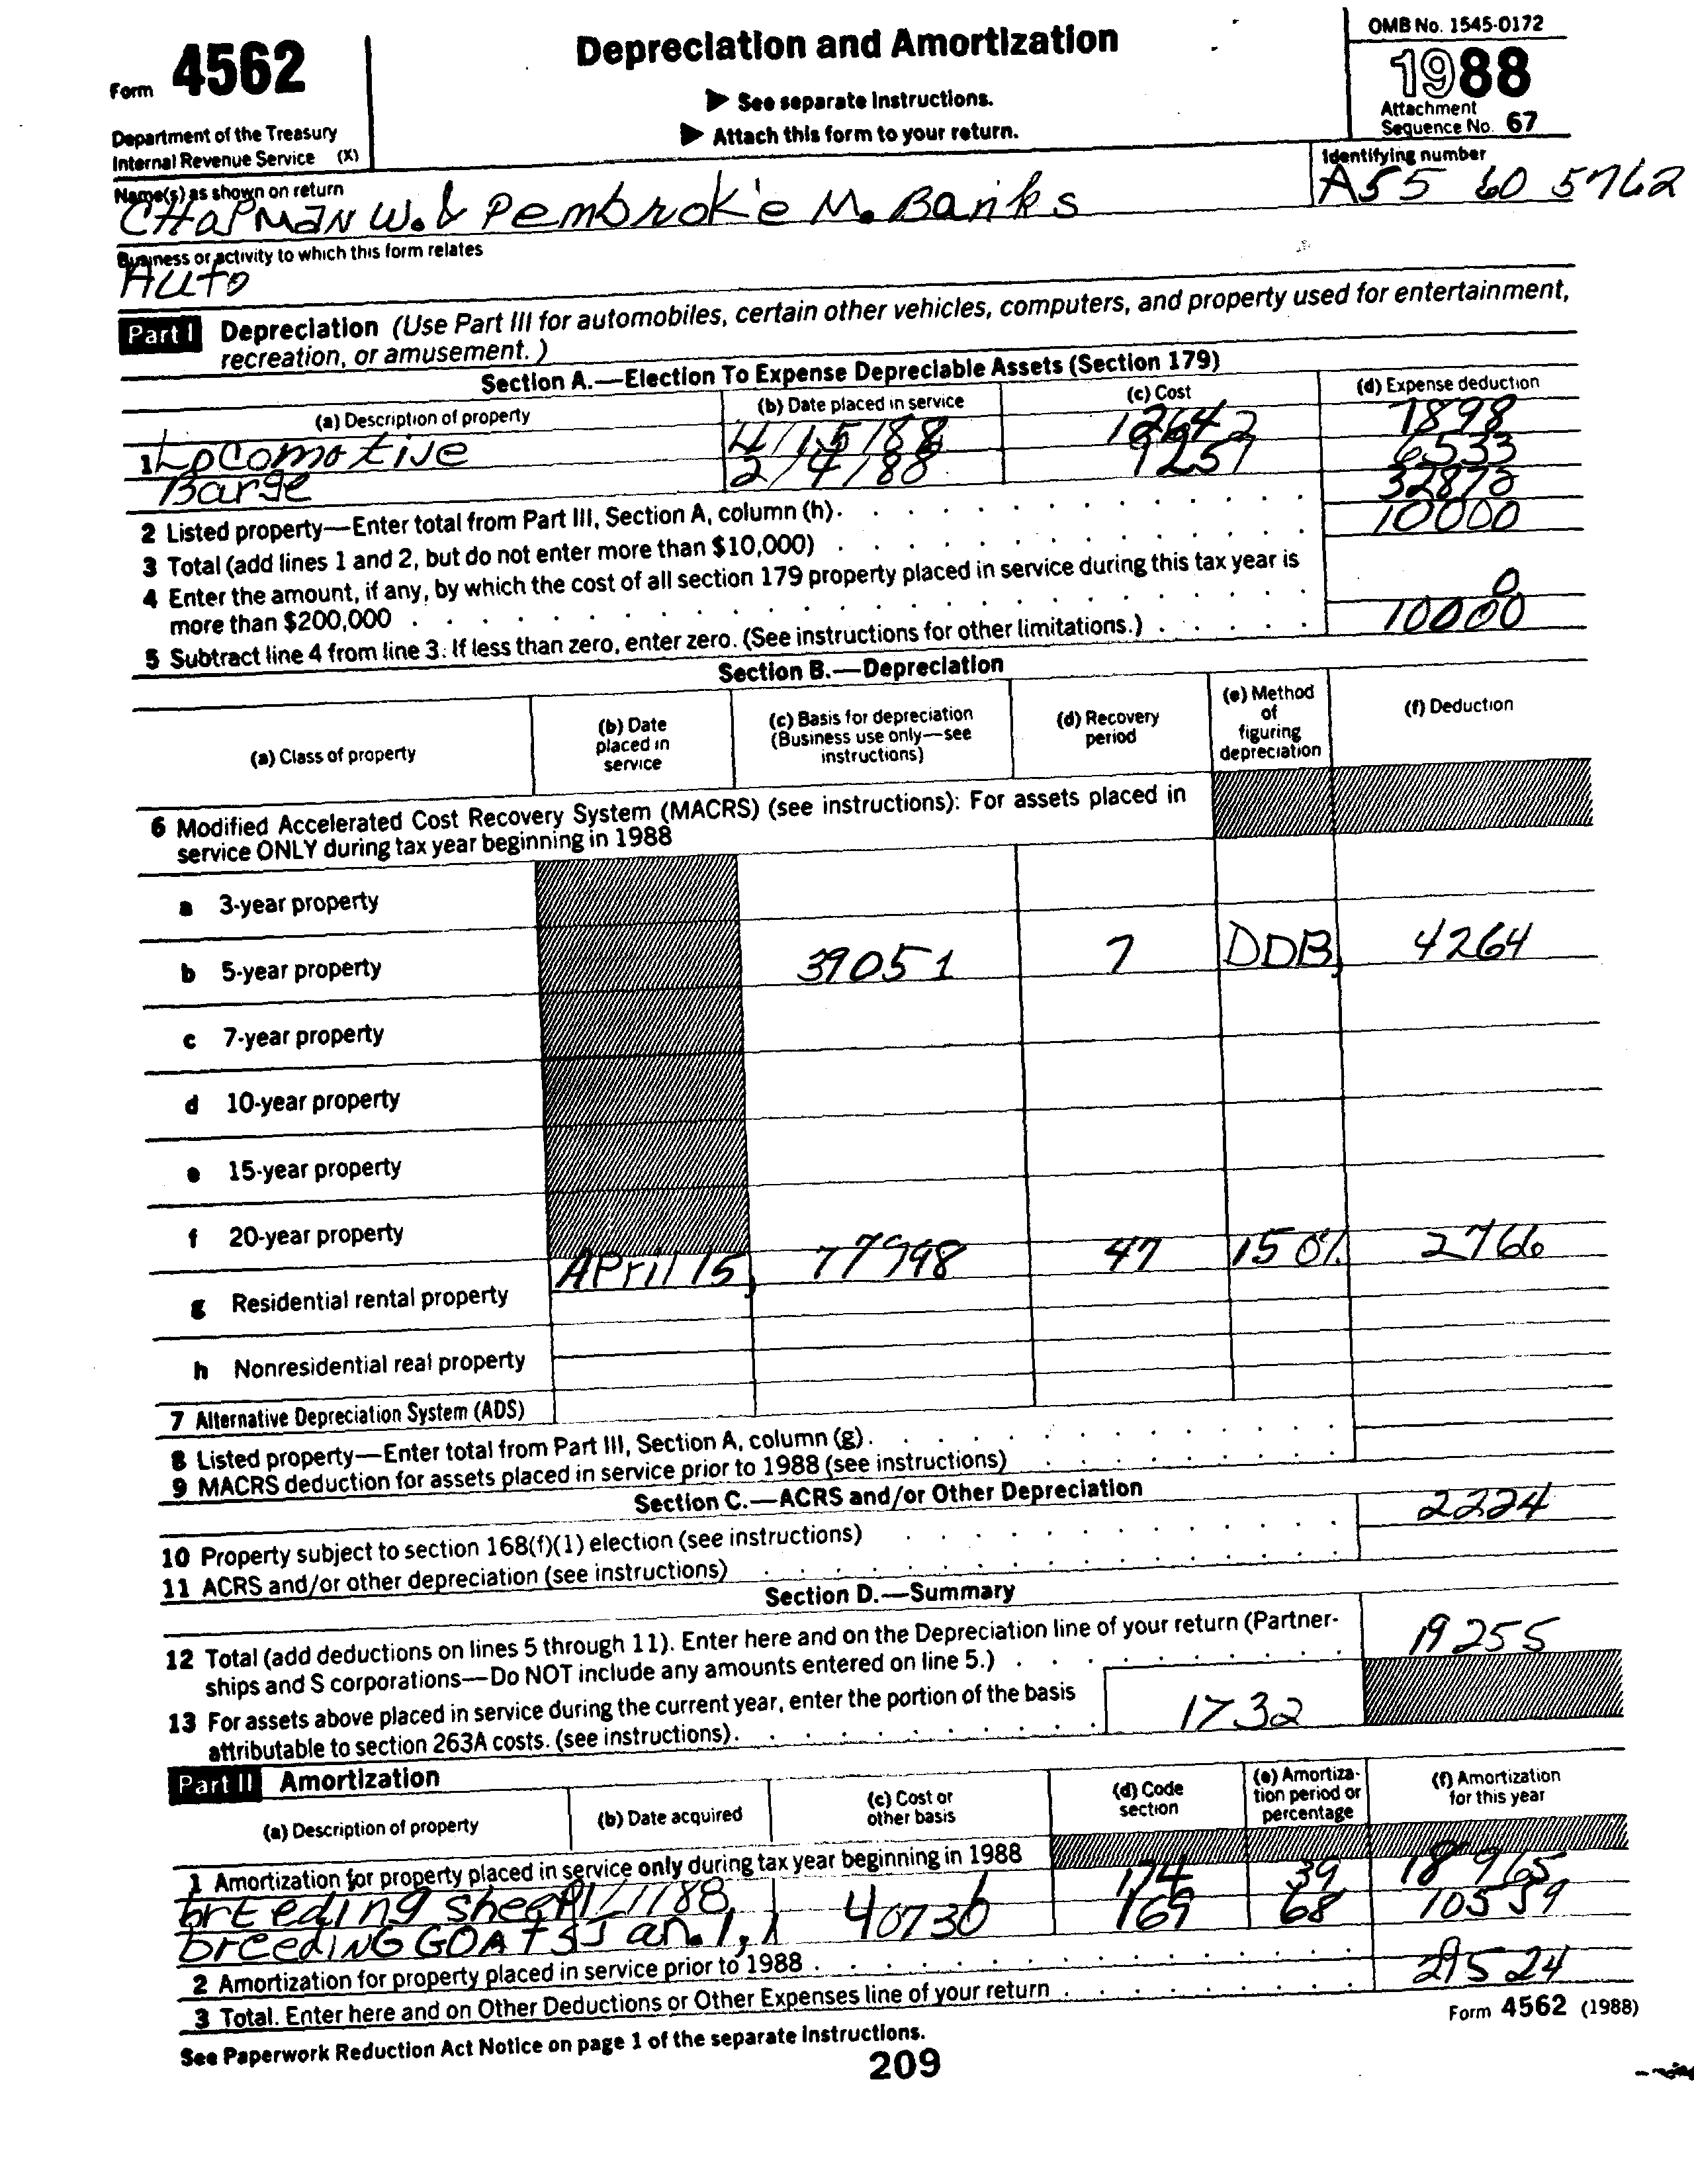 Form 4562
Department of the Treasury
Internal Revenue Service (X)
Depreciation and Amortization
▶ See separate Instructions.
▶ Attach this form to your return.
OMB No. 1545-0172
1988
Attachment
Sequence No. 67
Name(s) as shown on return
CHAPMAN W. & Pembroke M. Banks
Identifying number
A55 60 5762
Business or activity to which this form relates
Auto
Part I Depreciation (Use Part III for automobiles, certain other vehicles, computers, and property used for entertainment,
recreation, or amusement.)
Section A.—Election To Expense Depreciable Assets (Section 179)
(a) Description of property (b) Date placed in service (c) Cost (d) Expense deduction
1 Locomotive 4/15/88 12642 7898
Barge 2/4/88 9257 6533
2 Listed property—Enter total from Part III, Section A, column (h). 32878
3 Total (add lines 1 and 2, but do not enter more than $10,000) 10000
4 Enter the amount, if any, by which the cost of all section 179 property placed in service during this tax year is
more than $200,000 0
5 Subtract line 4 from line 3. If less than zero, enter zero. (See instructions for other limitations.) 10000
Section B.—Depreciation
(a) Class of property (b) Date placed in service (c) Basis for depreciation (Business use only—see instructions) (d) Recovery period (e) Method of figuring depreciation (f) Deduction
6 Modified Accelerated Cost Recovery System (MACRS) (see instructions): For assets placed in
service ONLY during tax year beginning in 1988
a 3-year property
b 5-year property 39051 7 DDB 4264
c 7-year property
d 10-year property
e 15-year property
f 20-year property
g Residential rental property April 15 77998 47 150% 2766
h Nonresidential real property
7 Alternative Depreciation System (ADS)
8 Listed property—Enter total from Part III, Section A, column (g).
9 MACRS deduction for assets placed in service prior to 1988 (see instructions)
Section C.—ACRS and/or Other Depreciation
10 Property subject to section 168(f)(1) election (see instructions) 2224
11 ACRS and/or other depreciation (see instructions)
Section D.—Summary
12 Total (add deductions on lines 5 through 11). Enter here and on the Depreciation line of your return (Partner-
ships and S corporations—Do NOT include any amounts entered on line 5.) 19255
13 For assets above placed in service during the current year, enter the portion of the basis
attributable to section 263A costs. (see instructions). 1732
Part II Amortization
(a) Description of property (b) Date acquired (c) Cost or other basis (d) Code section (e) Amortization period or percentage (f) Amortization for this year
1 Amortization for property placed in service only during tax year beginning in 1988
breeding sheep 1/1/88 174 39 18965
breeding GOATS Jan. 1, 40730 169 68 10559
2 Amortization for property placed in service prior to 1988
3 Total. Enter here and on Other Deductions or Other Expenses line of your return 29524
See Paperwork Reduction Act Notice on page 1 of the separate instructions.
Form 4562 (1988)
209